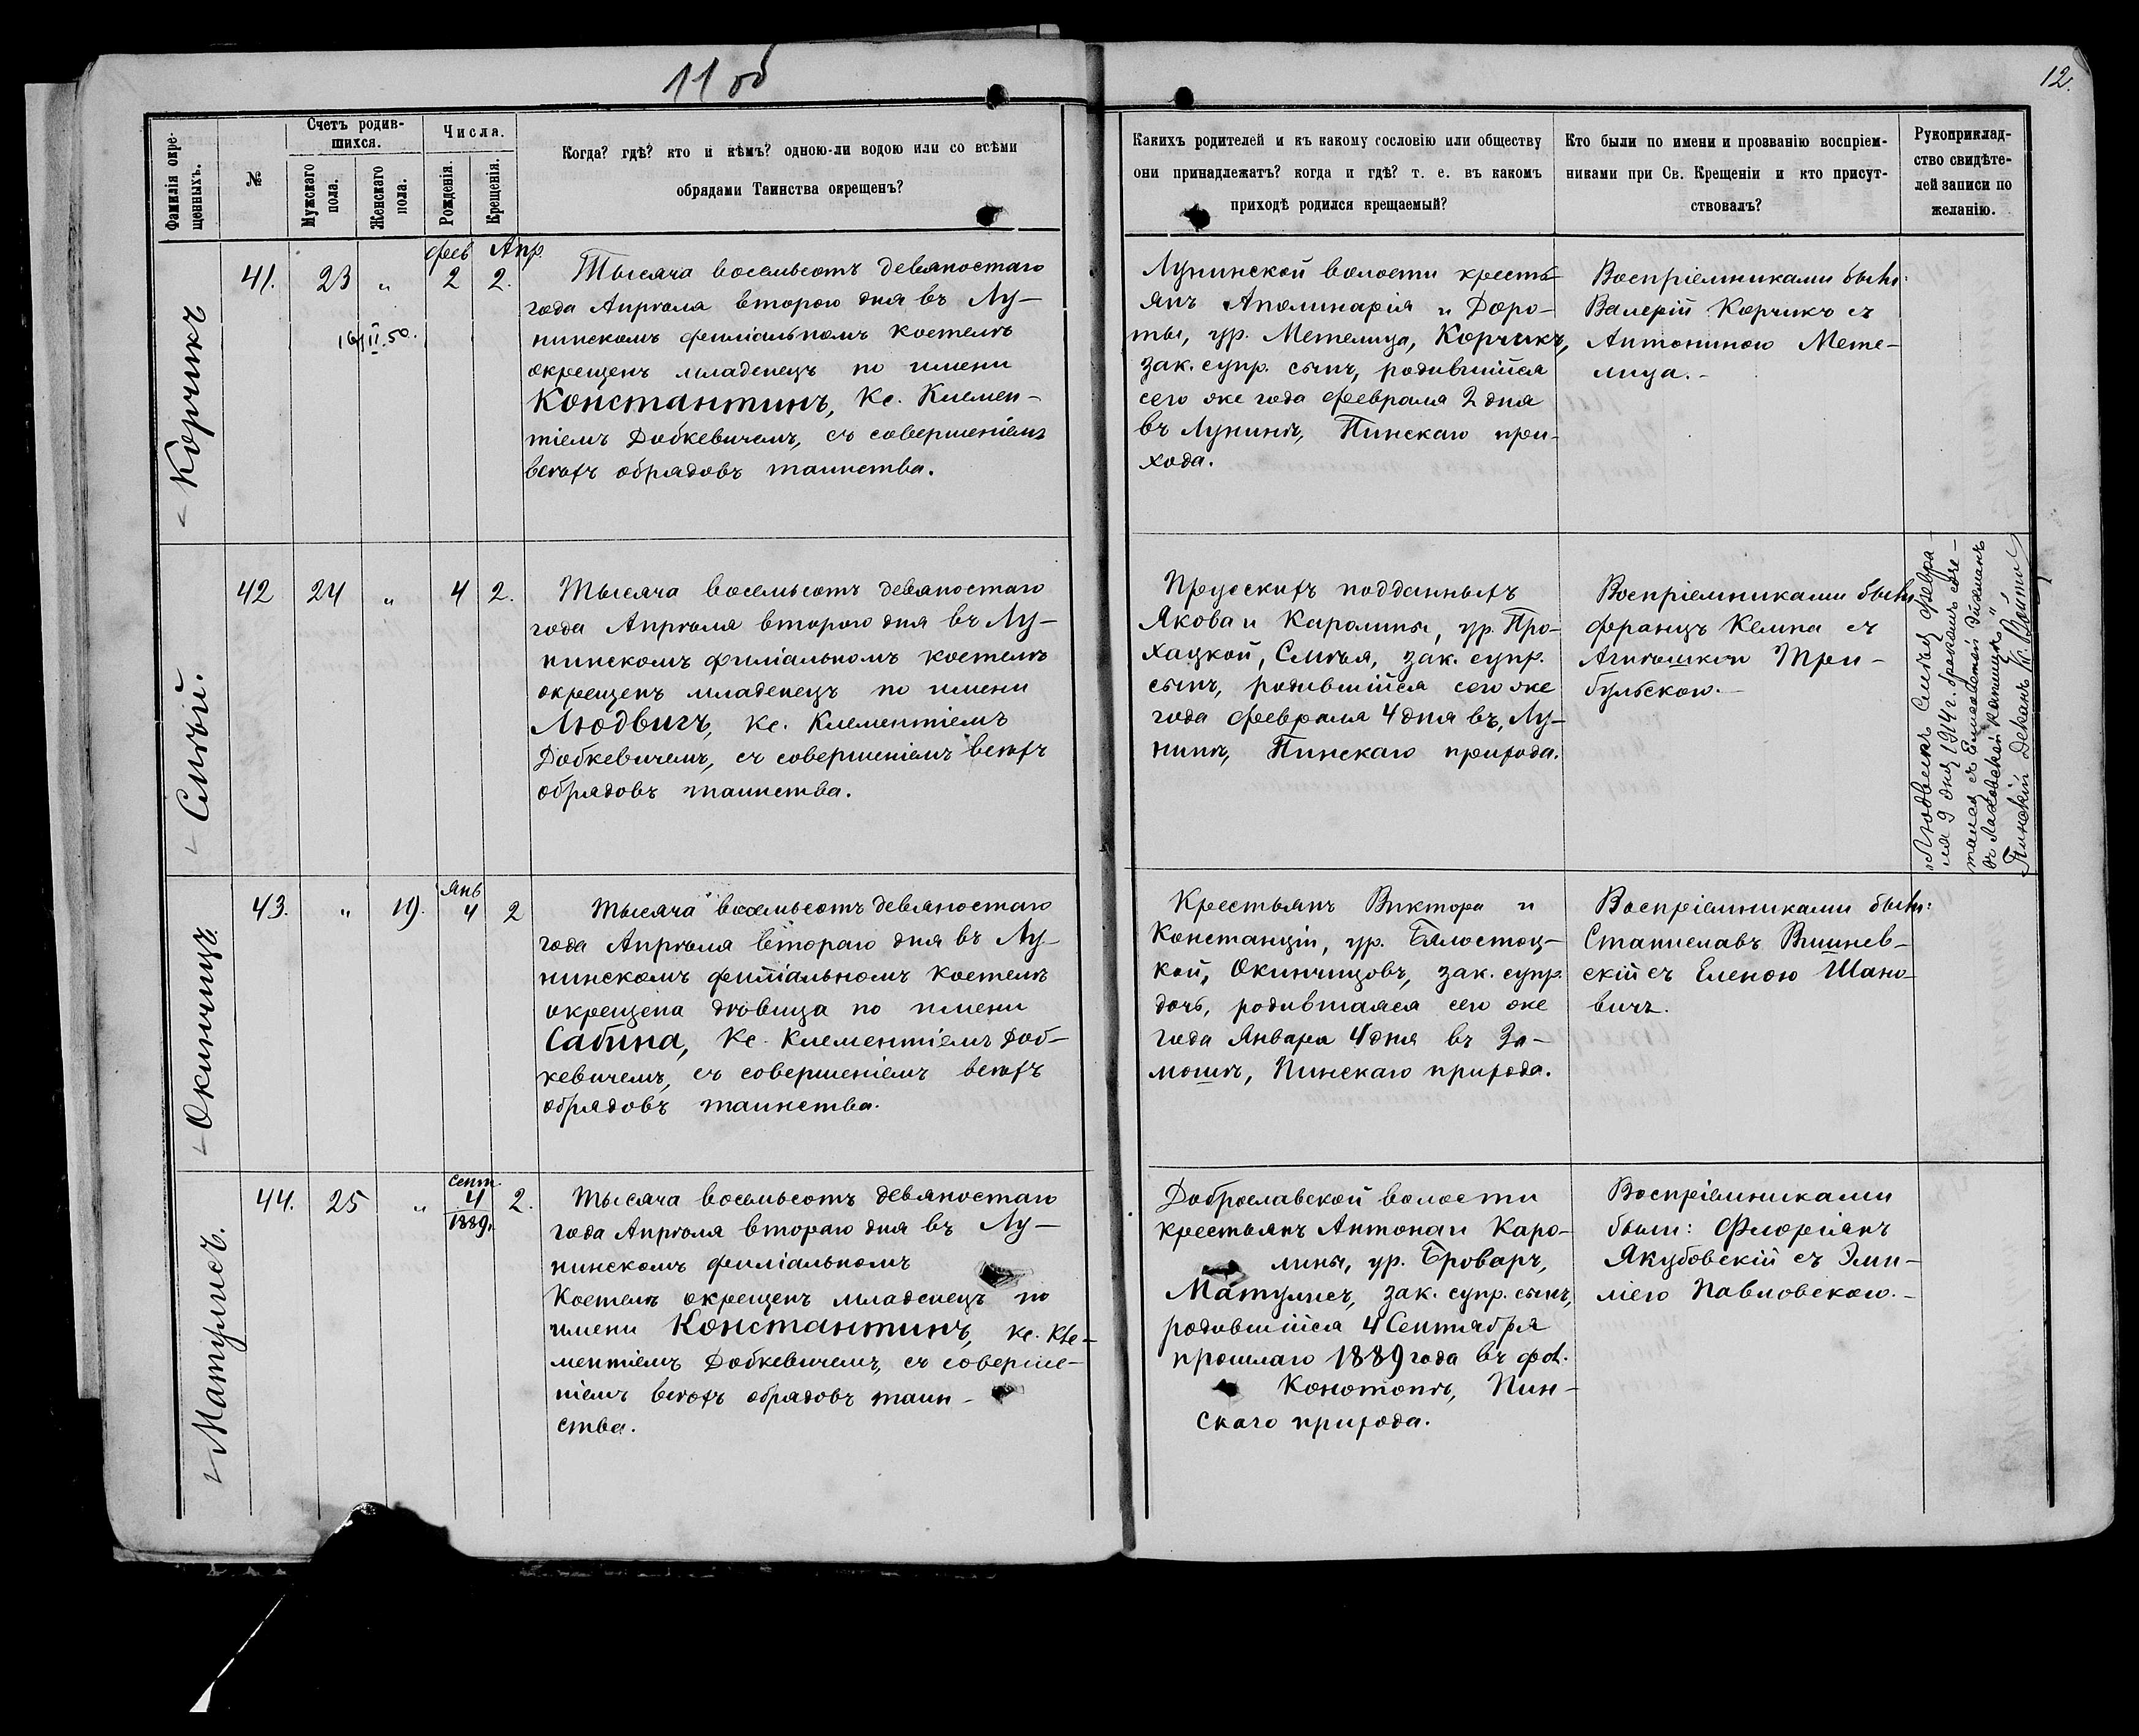 11 об
12.
Фамилія окре-
щенныхъ.
№
Счетъ родив-
шихся.
Мужскаго
пола.
Женскаго
пола.
Числа.
Рожденія.
Крещенія.
Когда? гдѣ? кто и кѣмъ? одною-ли водою или со всѣми
обрядами Таинства окрещенъ?
Какихъ родителей и къ какому сословію или обществу
они принадлежатъ? когда и гдѣ? т. е. въ какомъ
приходѣ родился крещаемый?
Кто были по имени и прозванію воспріем-
никами при Св. Крещеніи и кто присут-
ствовалъ?
Рукоприклад-
ство свидѣте-
лей записи по
желанію.
Корчикъ
41. 23 „
Фев 2
Апр. 2.
16/II.50.
Тысяча восемьсотъ девяностаго
года Апрѣля второго дня въ Лу-
нинскомъ филіальномъ костелѣ
окрещенъ младенецъ по имени
Константинъ, Кс. Клемен-
тіемъ Добкевичемъ, съ совершеніемъ
всѣхъ обрядовъ таинства.
Лунинской волости кресть-
янъ Аполинарія и Доро-
ты, ур. Метелица, Корчикъ,
зак. супр. сынъ, родившійся
сего же года февраля 2 дня
въ Лунинѣ, Пинскаго при-
хода.
Воспріемниками были:
Валерій Корчикъ съ
Антониною Мете-
лица.-
Смѣй.
42 24 „ 4 2.
Тысяча восемьсотъ девяностаго
года Апрѣля второго дня въ Лу-
нинскомъ филіальномъ костелѣ
окрещенъ младенецъ по имени
Людвигъ, Кс. Клементіемъ
Добкевичемъ, съ совершеніемъ всѣхъ
обрядовъ таинства.
Прусскихъ подданныхъ
Якова и Каролины, ур. Про-
хацкой, Смѣя, зак. супр.
сынъ, родившійся сего же
года февраля 4 дня въ Лу-
нинѣ, Пинскаго прихода.
Воспріемниками были
Францъ Кемпа съ
Три-
бульскою.-
„Людвигъ Смѣй Февра-
ля 9 дня 1914 г. бракомъ соче-
тался съ Елисаветой
въ каплицѣ"
Пинскій Деканъ Кс.
Окинчицъ
43. „ 19.
Янв 4 2
Тысяча восемьсотъ девяностаго
года Апрѣля втораго дня въ Лу-
нинскомъ филіальномъ костелѣ
окрещена дѣвица по имени
Сабина, Кс. Клементіемъ Доб-
кевичемъ, съ совершеніемъ всѣхъ
обрядовъ таинства.
Крестьянъ Виктора и
Констанціи, ур. Бялостоц-
кой, Окинчицовъ, зак. супр.
дочь, родившаяся сего же
года Января 4 дня въ За-
мошѣ, Пинскаго прихода.
Воспріемниками были:
Станиславъ Вишнев-
скій съ Еленою Шано-
вичъ.
Матулисъ.
44. 25 „
Сент. 4
1889г.
2.
Тысяча восемьсотъ девяностаго
года Апрѣля втораго дня въ Лу-
нинскомъ филіальномъ
Костелѣ окрещенъ младенецъ по
имени Константинъ, кс. Кле-
ментіемъ Добкевичемъ, съ соверше-
ніемъ всѣхъ обрядовъ таин-
ства.
Доброславской волости
крестьянъ Антона и Каро-
лины, ур. Броваръ,
Матулисъ, зак. супр. сынъ,
родившійся 4 Сентября
прошлаго 1889 года въ фол.
Конотопѣ, Пин-
скаго прихода.
Воспріемниками
были: Флоріянъ
Якубовскій съ Эми-
ліею Павловскою.-